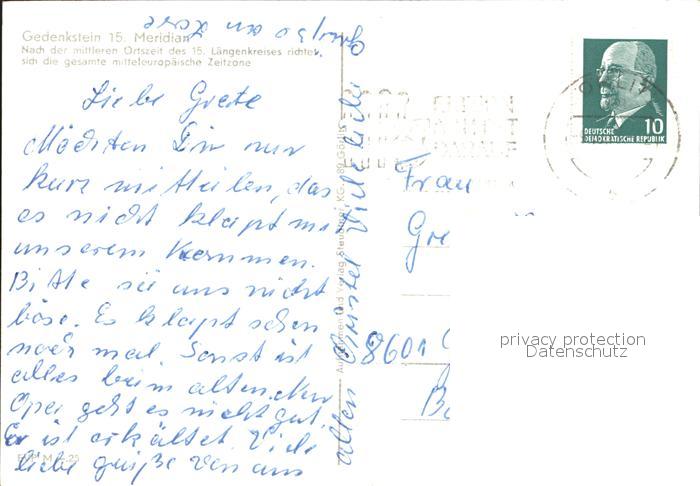 Gedenkstein 15. Meridian
Nach der mittleren Ortszeit des 15. Längenkreises richtet
sich die gesamte mitteleuropäische Zeitzone
Liebe Grete
Möchten Dir nur
kurz mitteilen, das
es nicht klapt mi
unserem kommen.
Bitte sei uns nicht
böse. Es klapt schon
noch mal. Sonst ist
alles beim alten. Nur
Opa geht es nicht gut.
Er ist erkältet. Viele
liebe grüße von uns
allen Viele liebe
DEUTSCHE
DEMOKRATISCHE REPUBLIK
10
Frau
Gre
8601
B
privacy protection
Datenschutz